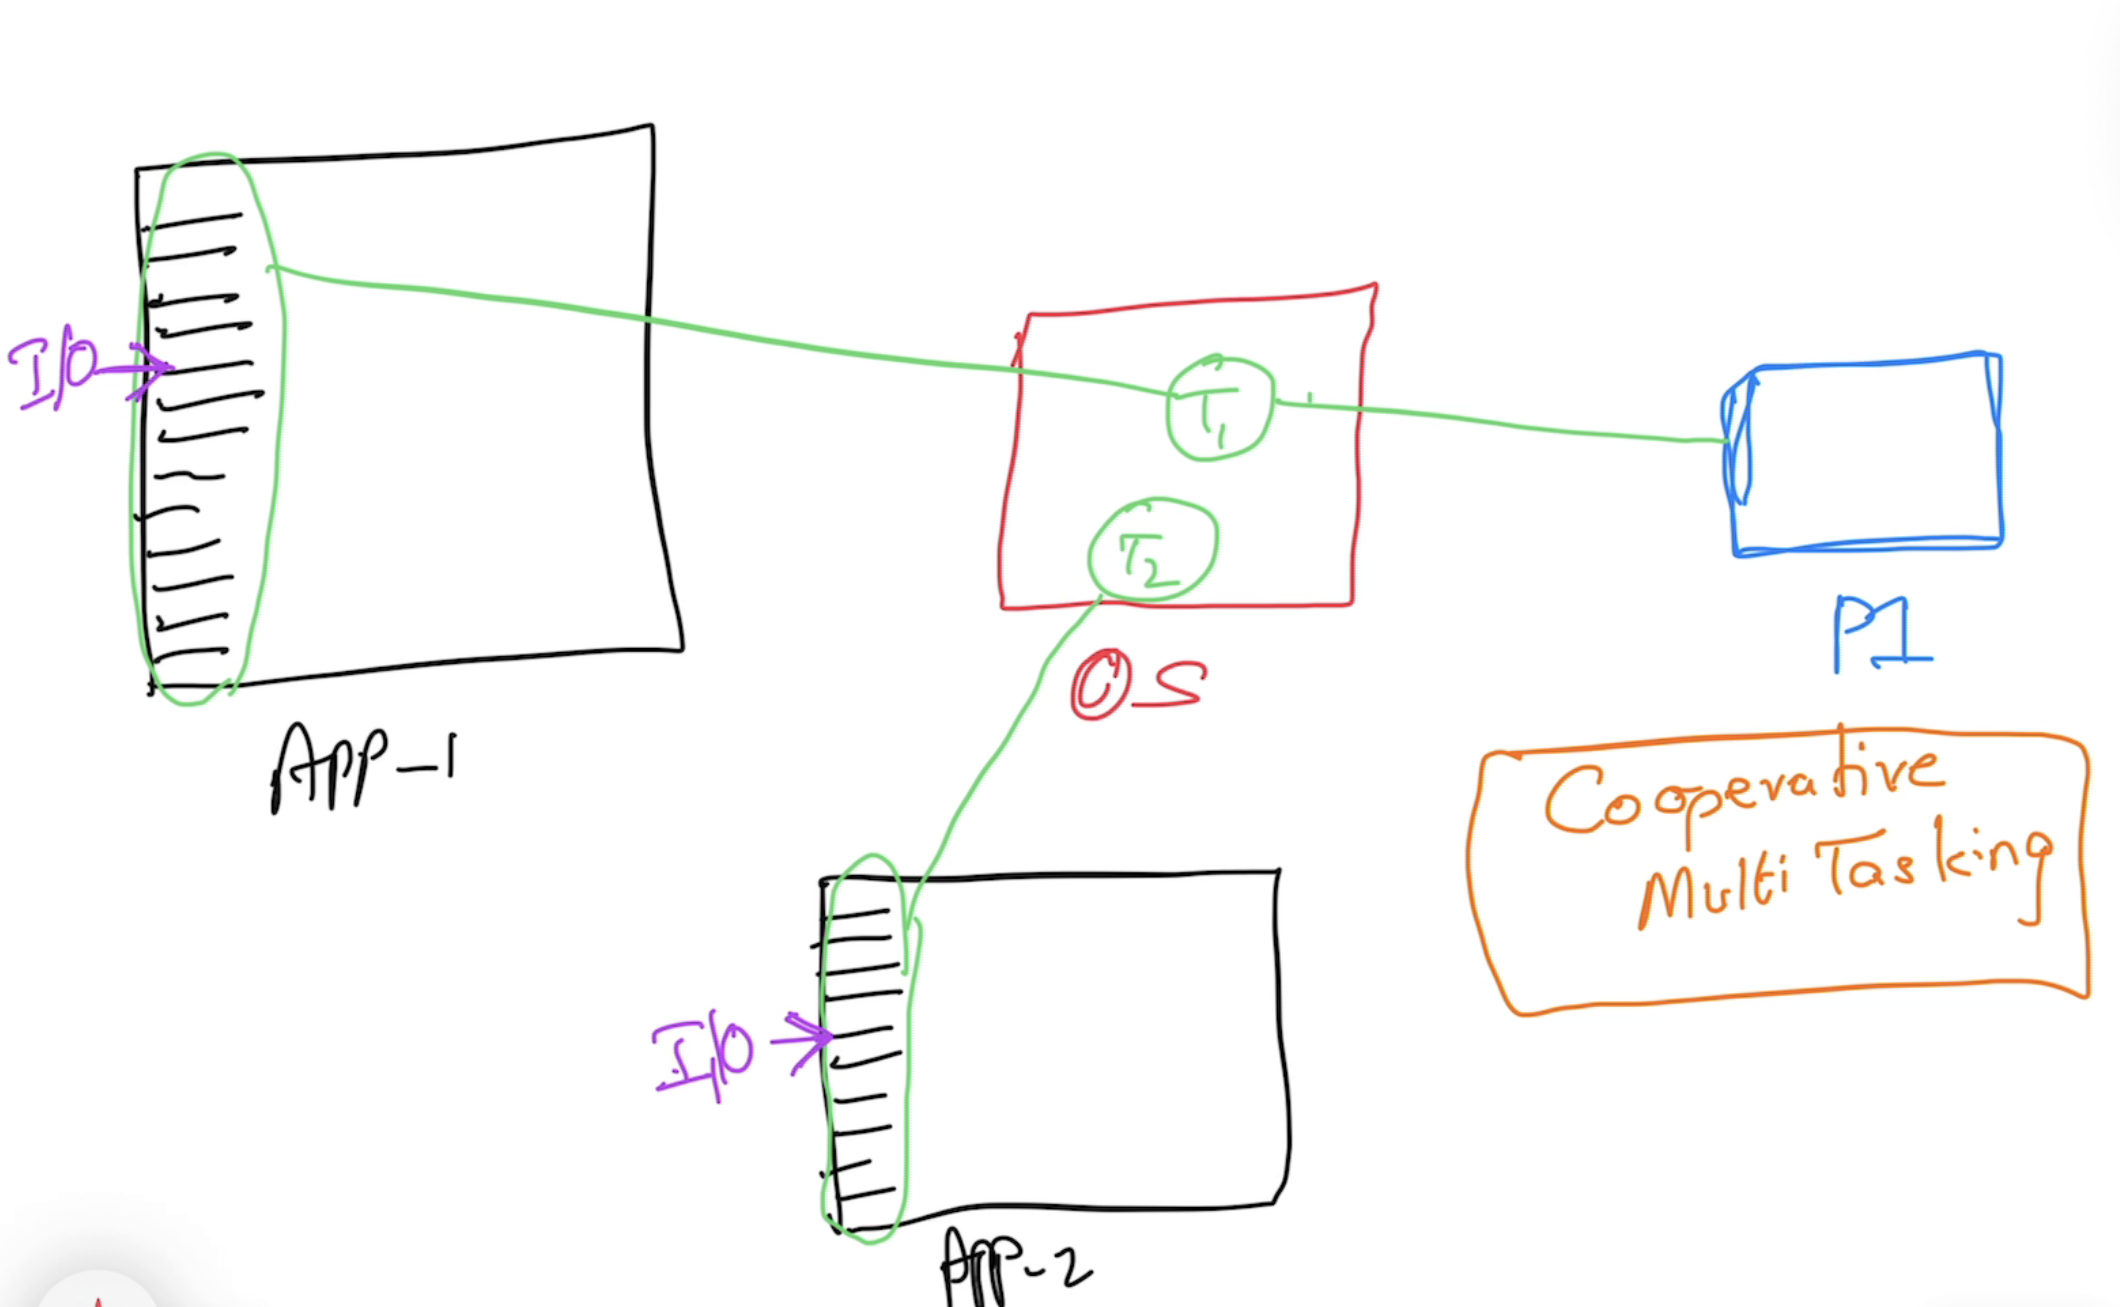 I/O
APP-1
T1
T2
OS
P1
Cooperative
Multi Tasking
I/O
APP-2